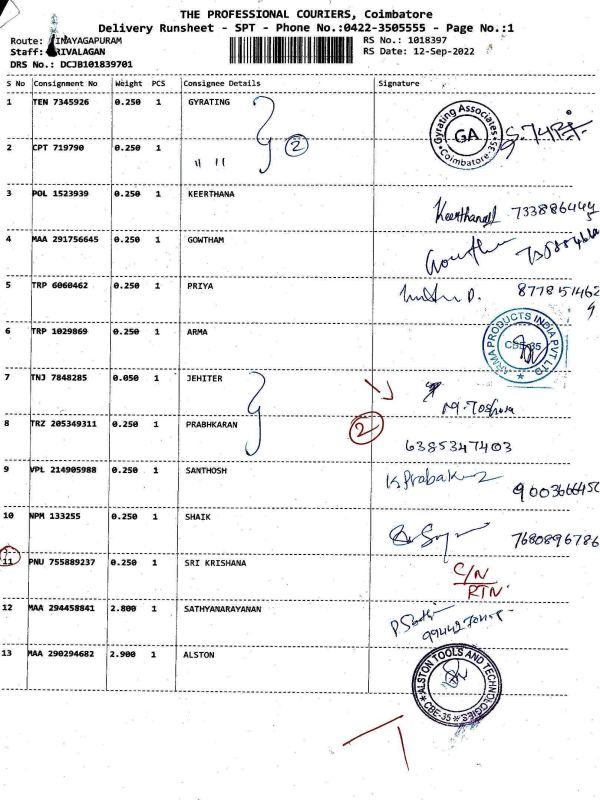 THE PROFESSIONAL COURIERS, Coimbatore
Delivery Runsheet - SPT - Phone No.:0422-3505555 - Page No.:1
Route: INAYAGAPURAM
RS No.: 1018397
Staff: RIVALAGAN
RS Date: 12-Sep-2022
DRS No.: DCJB101839701
S No Consignment No Weight PCS Consignee Details Signature
1 TEN 7345926 0.250 1 GYRATING
Gyrating Associates GA Coimbatore-35
2 CPT 719790 0.250 1 " "
2
3 POL 1523939 0.250 1 KEERTHANA
Keerthana
4 MAA 291756645 0.250 1 GOWTHAM
Gowtham
5 TRP 6060462 0.250 1 PRIYA
6 TRP 1029869 0.250 1 ARMA
ARMA PRODUCTS INDIA PVT LTD CBE-35
7 TNJ 7848285 0.050 1 JEHITER
2
8 TRZ 205349311 0.250 1 PRABHKARAN
6385347403
9 VPL 214905988 0.250 1 SANTHOSH
K Prabakar
10 NPM 133255 0.250 1 SHAIK
7680896786
11 PNU 755889237 0.250 1 SRI KRISHANA
C/N
RTN.
12 MAA 294458841 2.800 1 SATHYANARAYANAN
13 MAA 290294682 2.900 1 ALSTON
ALSTON TOOLS AND TECHNOLOGIES CBE-35